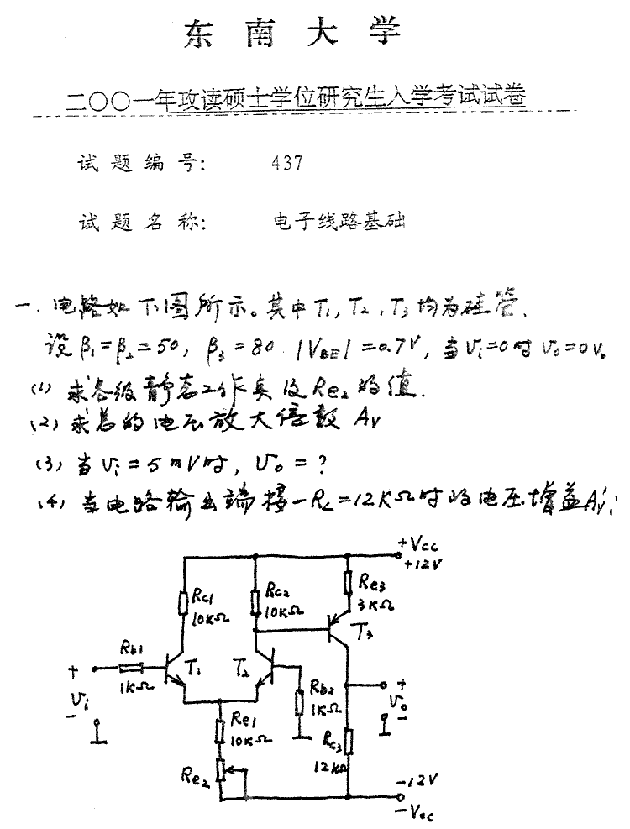 东 南 大 学
二〇〇一年攻读硕士学位研究生入学考试试卷
试 题 编 号: 437
试 题 名 称: 电子线路基础
一. 电路如下图所示。其中T₁, T₂, T₃均为硅管、
设 β₁=β₂=50, β₃=80. |V_BE|=0.7V, 当Vi=0时 Vo=0V。
(1) 求各级静态工作点及Re2的值.
(2) 求总的电压放大倍数 Av
(3) 当Vi=5mV时, Vo=?
(4) 当电路输出端接一RL=12KΩ时的电压增益Av';
+Vcc
+12V
Rc1
10KΩ
Rc2
10KΩ
Re3
3KΩ
T3
Rb1
1KΩ
T1
T2
Rb2
1KΩ
+
Vi
-
+
Vo
-
Re1
10KΩ
Rc3
12KΩ
Re2
-12V
-Vcc